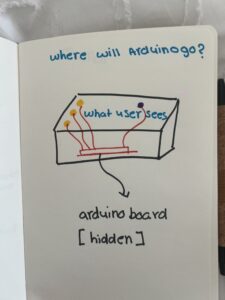 where will Arduino go?
what user sees
arduino board
[hidden]